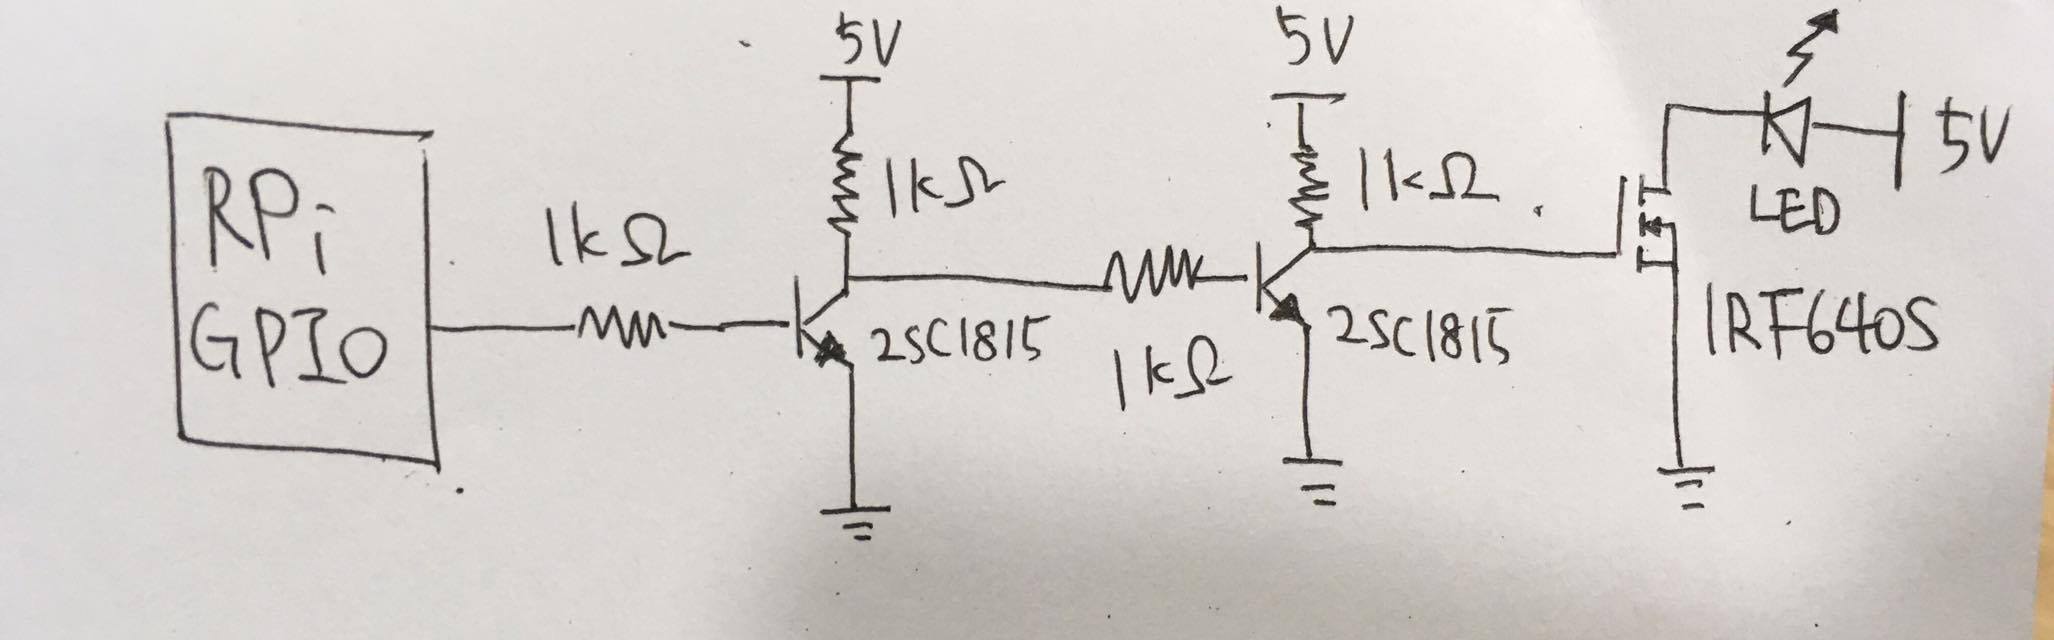 RPi
GPIO
1kΩ
5V
1kΩ
2SC1815
1kΩ
5V
1kΩ
2SC1815
5V
LED
IRF640S